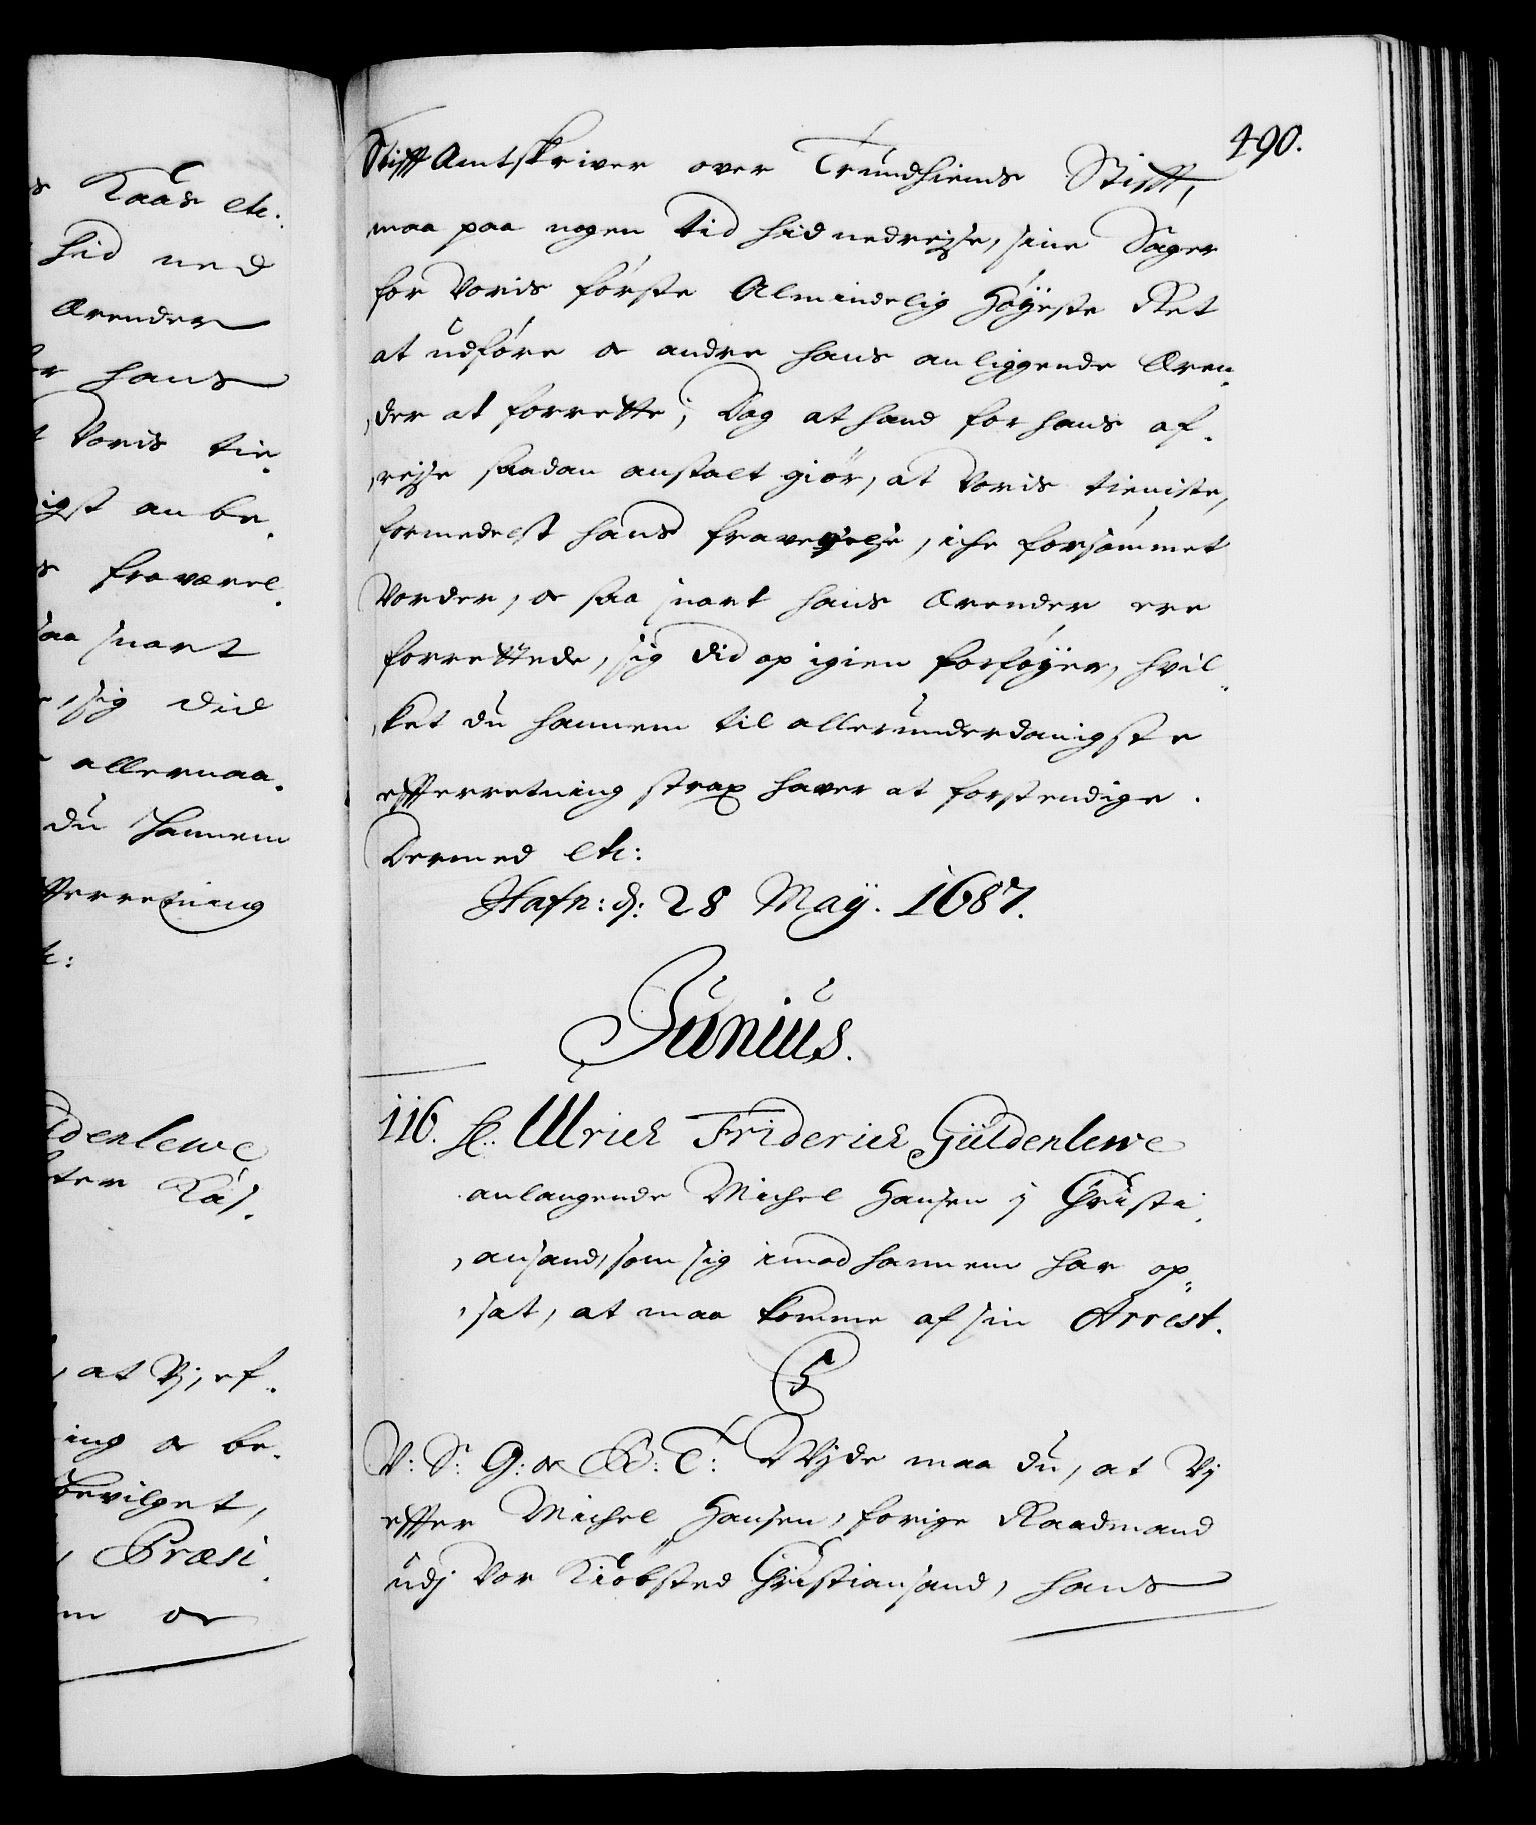 s Kaas etc:
hid ned
Ærender
hans
Voris tie-
igst anbe-
s fraværel-
saa snart
sig did
allernaa-
du hannem
fterretning
tc:
denlewe
ter Kaj-
, at Vj, ef-
ing oc be-
bevilget,
, Præsi-
oc
490.
StifftAmtskriver over Trundhiems Stifft,
maa paa nogen tid hid nedrejse, sine Sager
for Voris første Almindelig Høyeste Ret
at udføre oc andre hans anliggende Æren-
der at forrette; Dog at hand for hans af-
rejse saadan anstalt giør, at Voris tieniste,
formedelst hans fraverelse, iche forsømmet
Vorder, oc saa snart hans Ærender ere
forrettede, sig did op igien forføyer, hvil-
ket du hannem til allerunderdanigste
efterretning strax haver at forstendige.
Dermed etc:
Hafn: d: 28 Maÿ. 1687.
Junius.
116. Hr: Ulrich Friderich Güldenlewe
anlangende Michel Hansen j Christi-
ansand, som sig imod hannem har op-
sat, at maa komme af sin Arrest.
C5
V: S: G: oc B: T: Wjde maa du, at Vj
effter Michel Hansen, forige Raadmand
udj Vor Kiøbsted Christiansand, hans